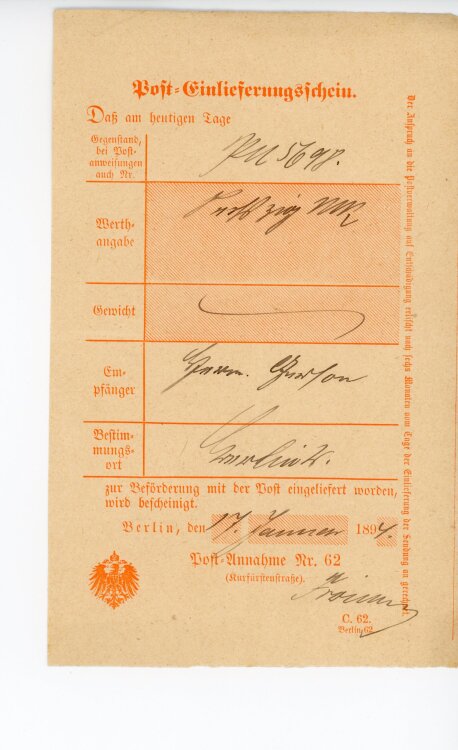 Post-Einlieferungsschein.
Daß am heutigen Tage
Gegenstand,
bei Post-
anweisungen
auch Nr.
PM 5698.
Werth-
angabe
Gewicht
Em-
pfänger
Herrn. Gerson
Bestim-
mungs-
ort
zur Beförderung mit der Post eingeliefert worden,
wird bescheinigt.
Berlin, den 17. Januar 1894.
Post-Annahme Nr. 62
(Kurfürstenstraße).
C. 62.
Berlin 62
Der Anspruch an die Postverwaltung auf Entschädigung erlischt nach sechs Monaten vom Tage der Einlieferung der Sendung an gerechnet.